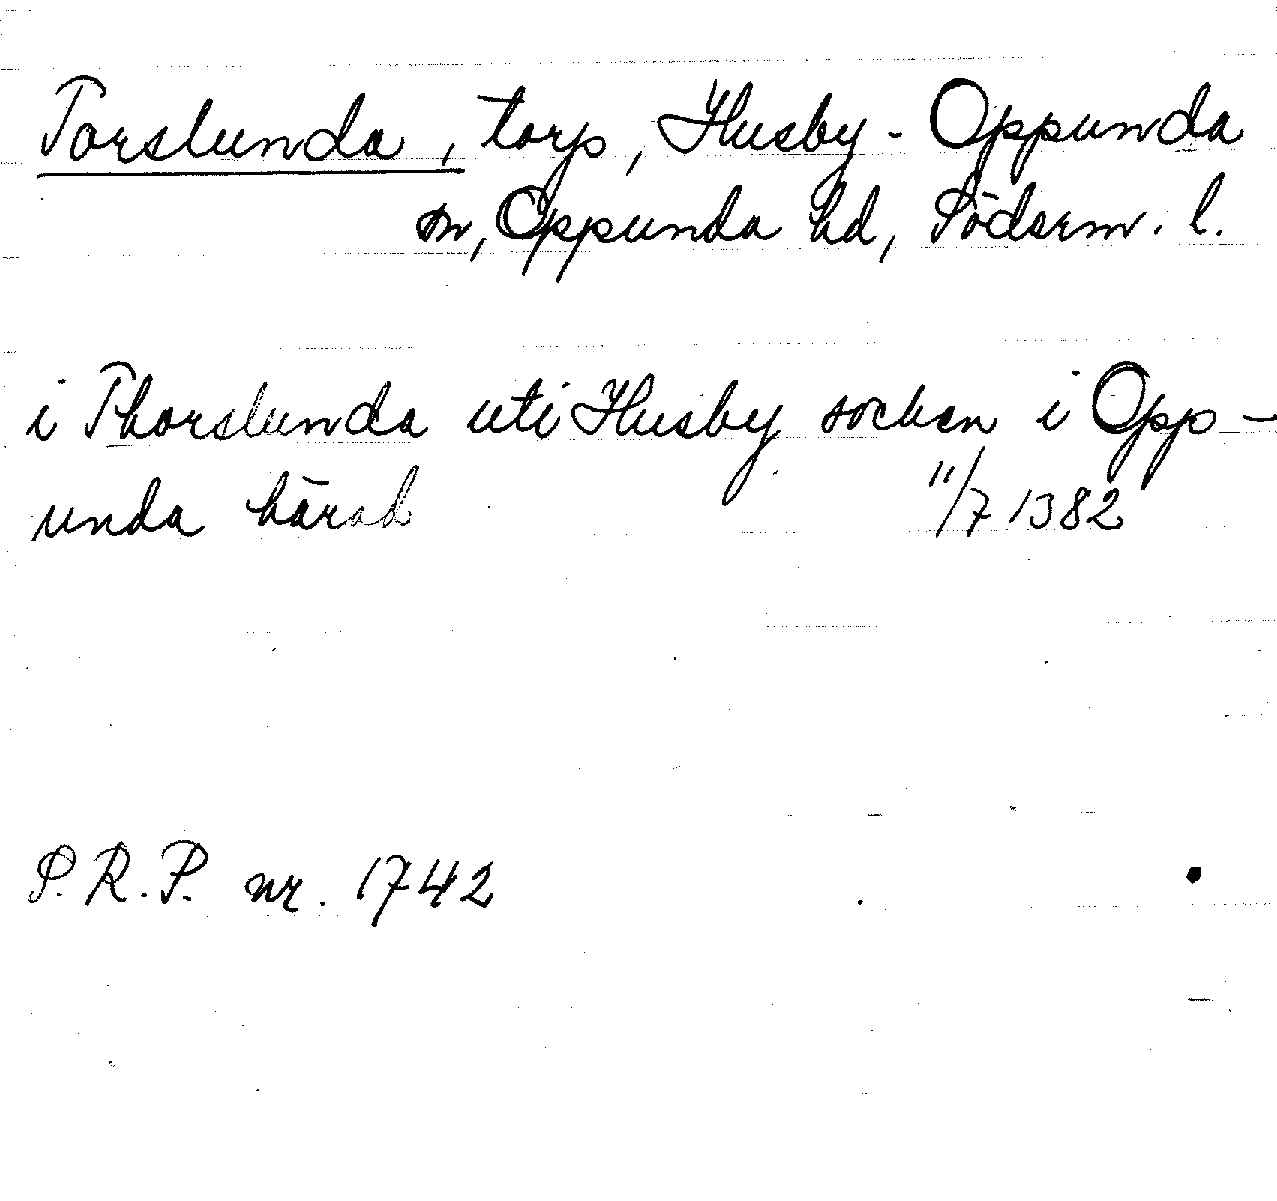 Torslunda, torp, Husby-Oppunda
sn, Oppunda hd, Söderm. l.
i Thorslunda uti Husby sochen i Opp-
unda härad 11/7 1382
S.R.P. nr. 1742